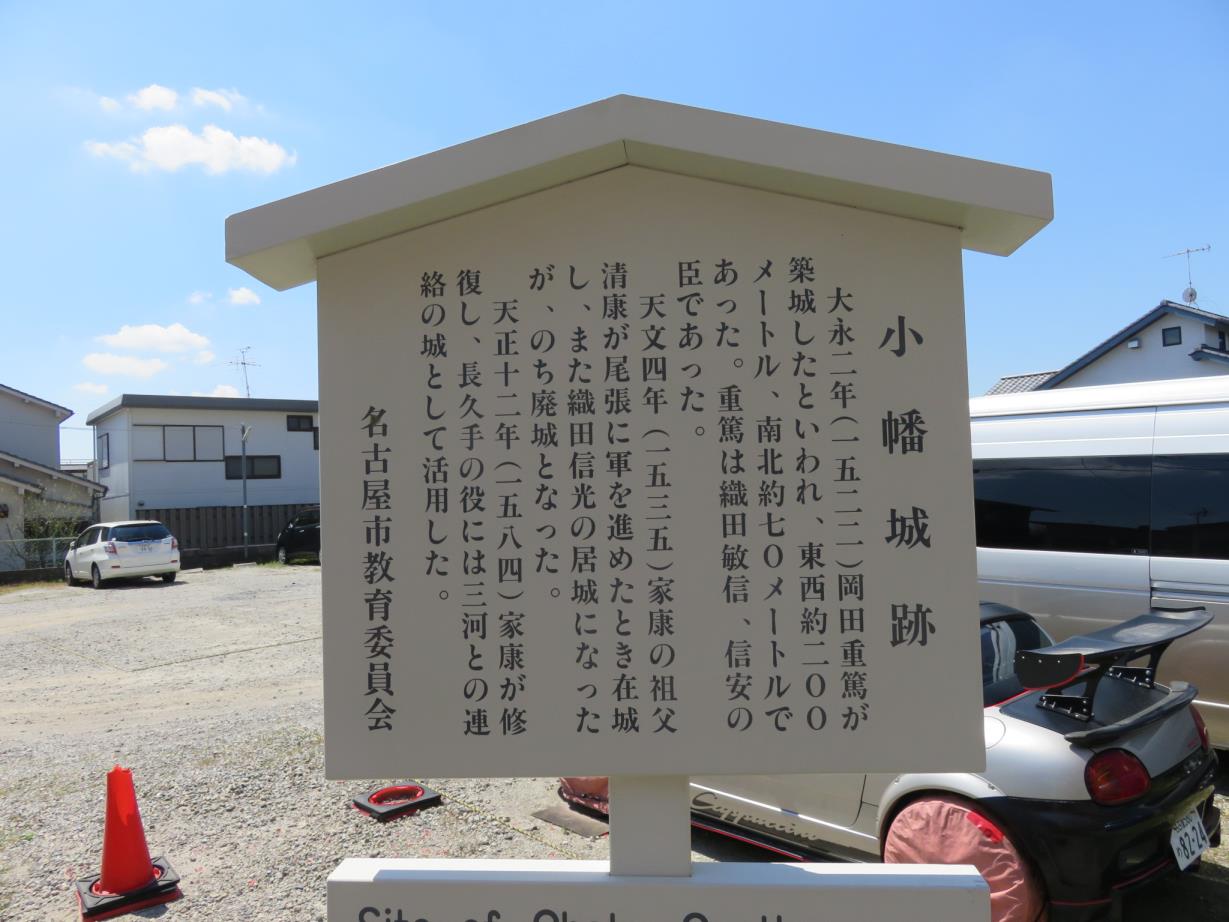 小幡城跡
大永二年(一五二二)岡田重篤が
築城したといわれ、東西約二〇〇
メートル、南北約七〇メートルで
あった。重篤は織田敏信、信安の
臣であった。
天文四年(一五三五)家康の祖父
清康が尾張に軍を進めたとき在城
し、また織田信光の居城になった
が、のち廃城となった。
天正十二年(一五八四)家康が修
復し、長久手の役には三河との連
絡の城として活用した。
名古屋市教育委員会
Cappuccino
82-24
Site of